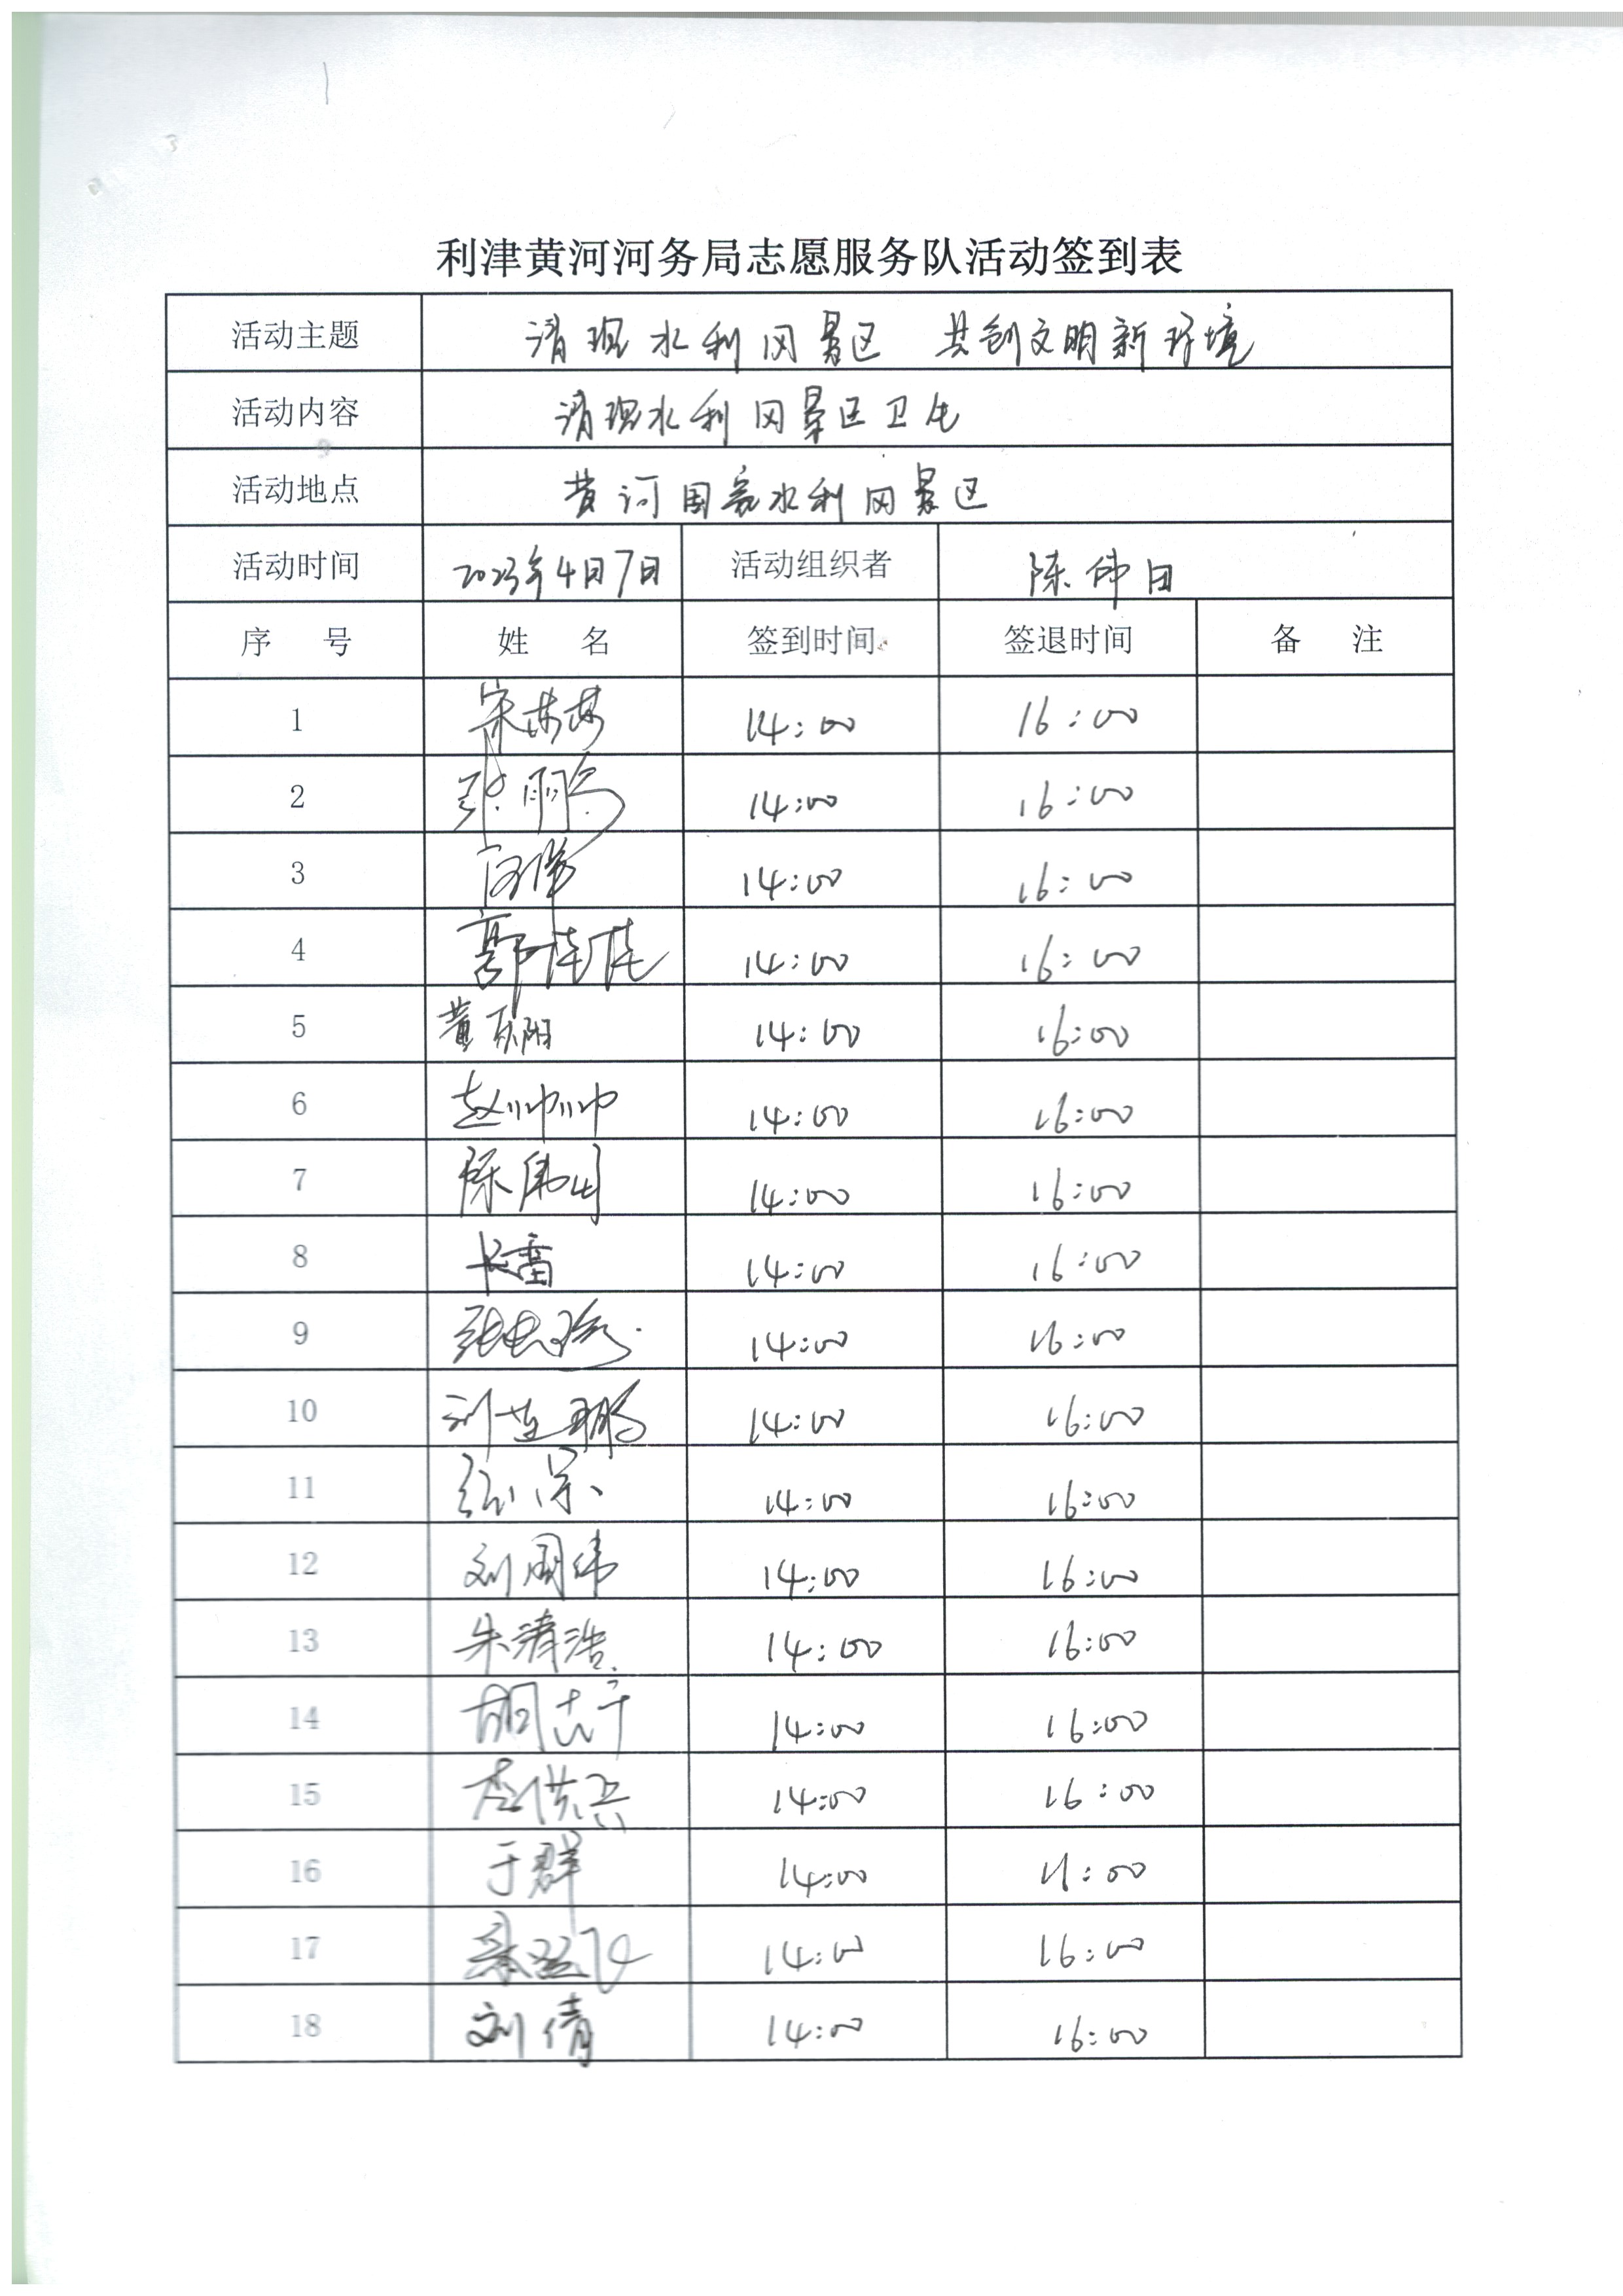 利津黄河河务局志愿服务队活动签到表
活动主题 清理水利风景区 共创文明新环境
活动内容 清理水利风景区卫生
活动地点 黄河国家水利风景区
活动时间 2023年4月7日 活动组织者 陈伟
序 号 姓 名 签到时间 签退时间 备 注
1 宋 14:00 16:00
2 张雨 14:00 16:00
3 14:00 16:00
4 郭佳佳 14:00 16:00
5 黄 阳 14:00 16:00
6 赵帅帅 14:00 16:00
7 陈伟 14:00 16:00
8 雷 14:00 16:00
9 张 14:00 16:00
10 刘 鹏 14:00 16:00
11 14:00 16:00
12 刘国伟 14:00 16:00
13 朱清浩 14:00 16:00
14 胡志 14:00 16:00
15 李洪 14:00 16:00
16 于群 14:00 16:00
17 14:00 16:00
18 刘倩 14:00 16:00